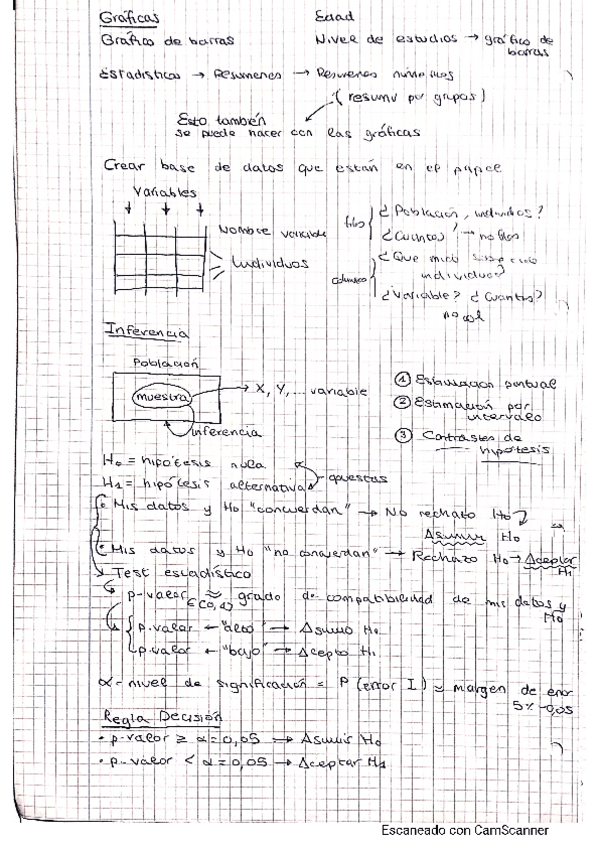 Gráficas Edad
Gráfico de barras Nivel de estudios → gráfico de barras
Estadísticos → Resumenes → Resumenes numéricos
(resumu por grupos)
Esto también
se puede hacer con las gráficas
Crear base de datos que están en el papel
Variables
Nombre variable
Individuos
filas
¿Población, individuos?
¿Cuántos? → no filas
columnas
¿Que mido individuo?
¿Variable? ¿Cuantas?
no col
Inferencia
Población
muestra → X, Y, ... variable
inferencia
① Estimación puntual
② Estimación por intervalo
③ Contrastes de hipótesis
H₀ = hipótesis nula
H₁ = hipótesis alternativa
opuestas
• Mis datos y H₀ "concuerdan" → No rechazo H₀
Asumir H₀
• Mis datos y H₀ "no concuerdan" → Rechazo H₀ → Aceptar H₁
Test estadístico
p-valor ≈ grado de compatibilidad de mis datos y H₀
∈[0,1]
p.valor ← "alto" → Asumo H₀
p.valor ← "bajo" → Acepto H₁
α = nivel de significación = P(error I) ≈ margen de error
5% - 0,05
Regla Decisión
• p-valor ≥ α = 0,05 → Asumir H₀
• p-valor < α = 0,05 → Aceptar H₁
Escaneado con CamScanner